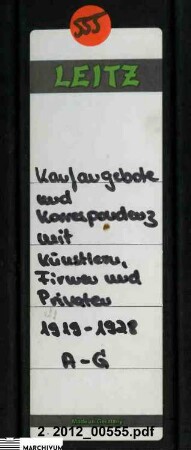 555
LEITZ
Kaufangebote
und
Korrespondenz
mit
Künstlern,
Firmen und
Privaten
1919-1928
A-G
2_2012_00555.pdf
MARCHIVUM